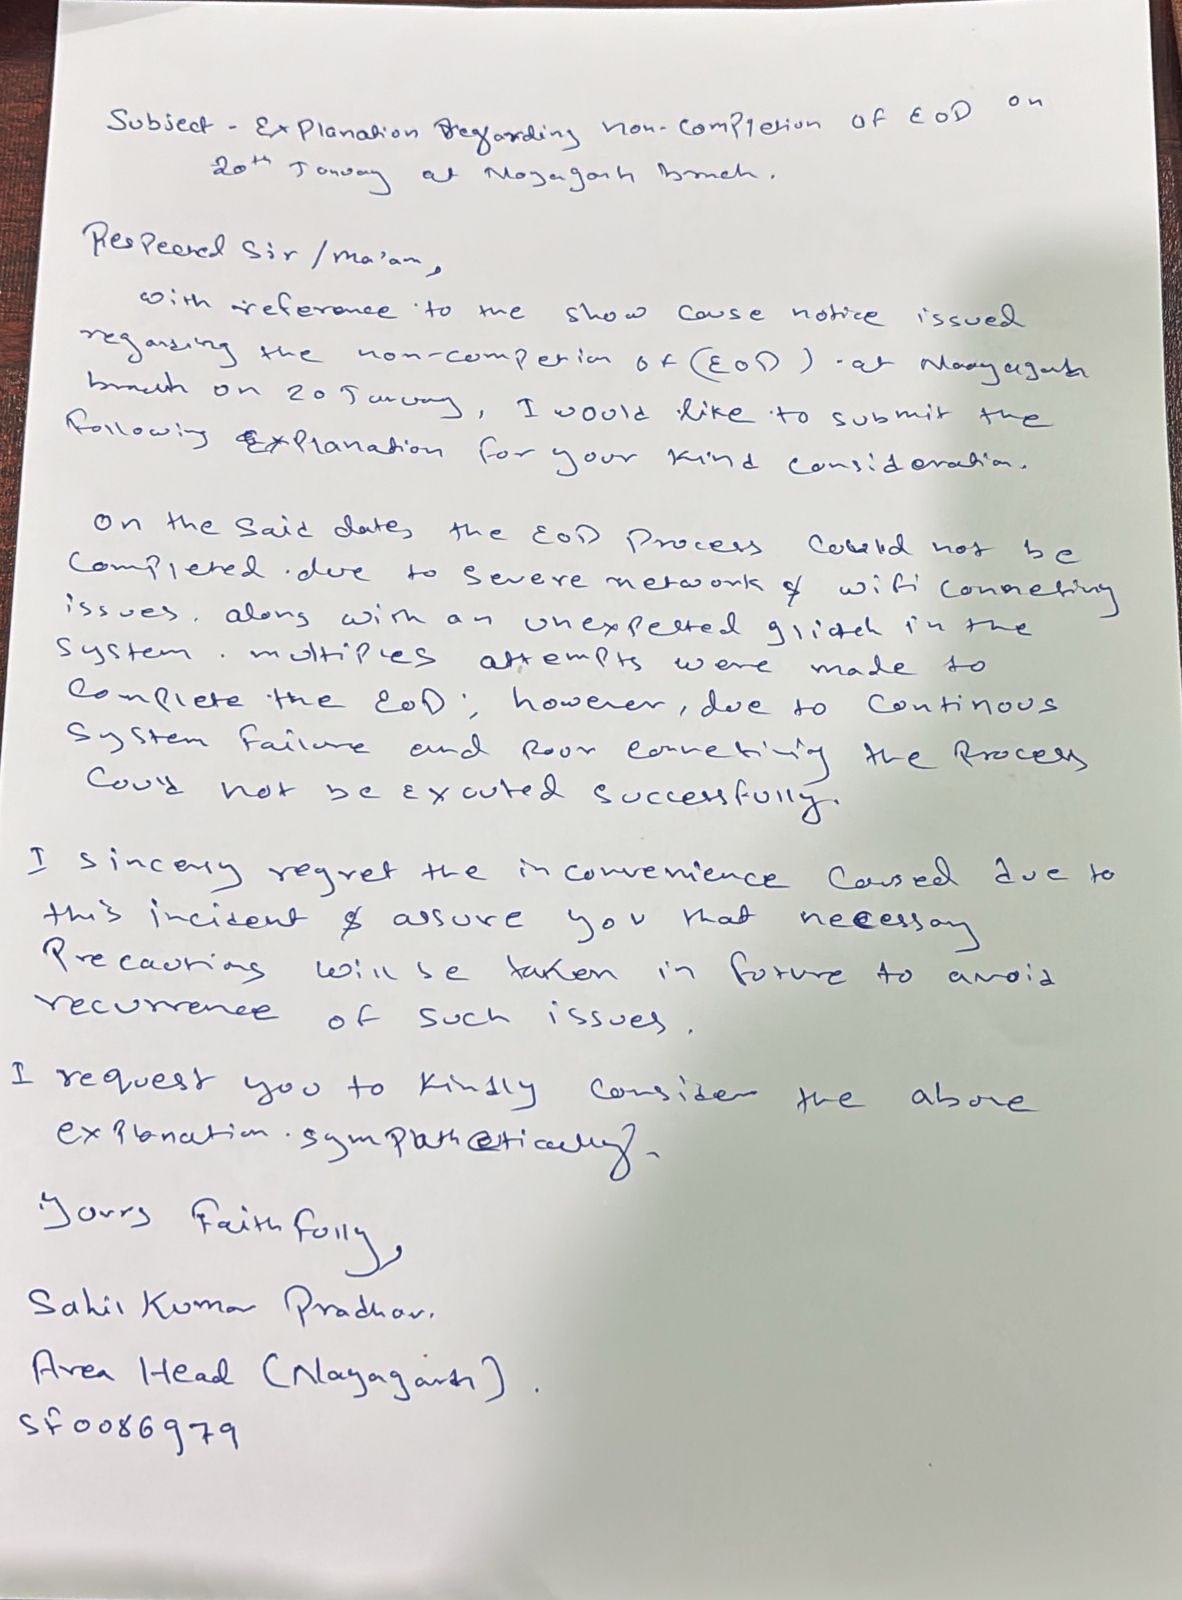 Subject - Explanation Regarding non-completion of EOD on
20th January at Nayagarh Branch.
Respected Sir / Ma'am,
with reference to the show cause notice issued
regarding the non-competion of (EOD) - at Naayagarh
branch on 20 January, I would like to submit the
following Explanation for your kind consideration.
On the said dates, the EOD process could not be
completed due to severe network & wifi conneting
issues. along with an unexpected glitch in the
system. multiples attempts were made to
complete the EOD; however, due to continous
system failure and poor conneting the process
could not be excuted successfully.
I sincerly regret the inconvenience caused due to
this incident & assure you that necessary
precautions will be taken in future to avoid
recurrence of such issues.
I request you to kindly consider the above
explanation sympathetically.
Yours Faithfully,
Sahil Kumar Pradhan.
Area Head (Nayagarh).
SF0086979